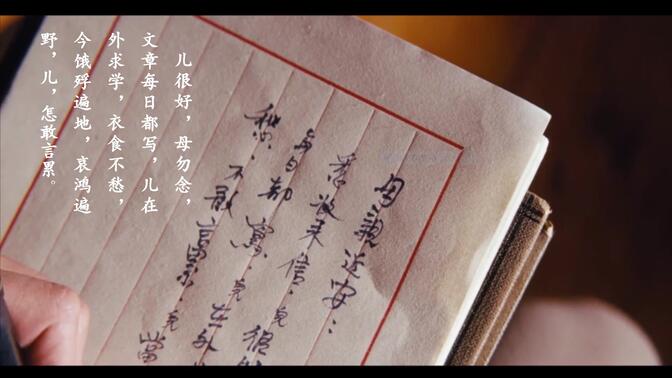 儿很好，母勿念，
文章每日都写，儿在
外求学，衣食不愁，
今饿殍遍地，哀鸿遍
野，儿，怎敢言累。
母親近安：
来信．兒很
每日都寫．兒在外
愁．不敢